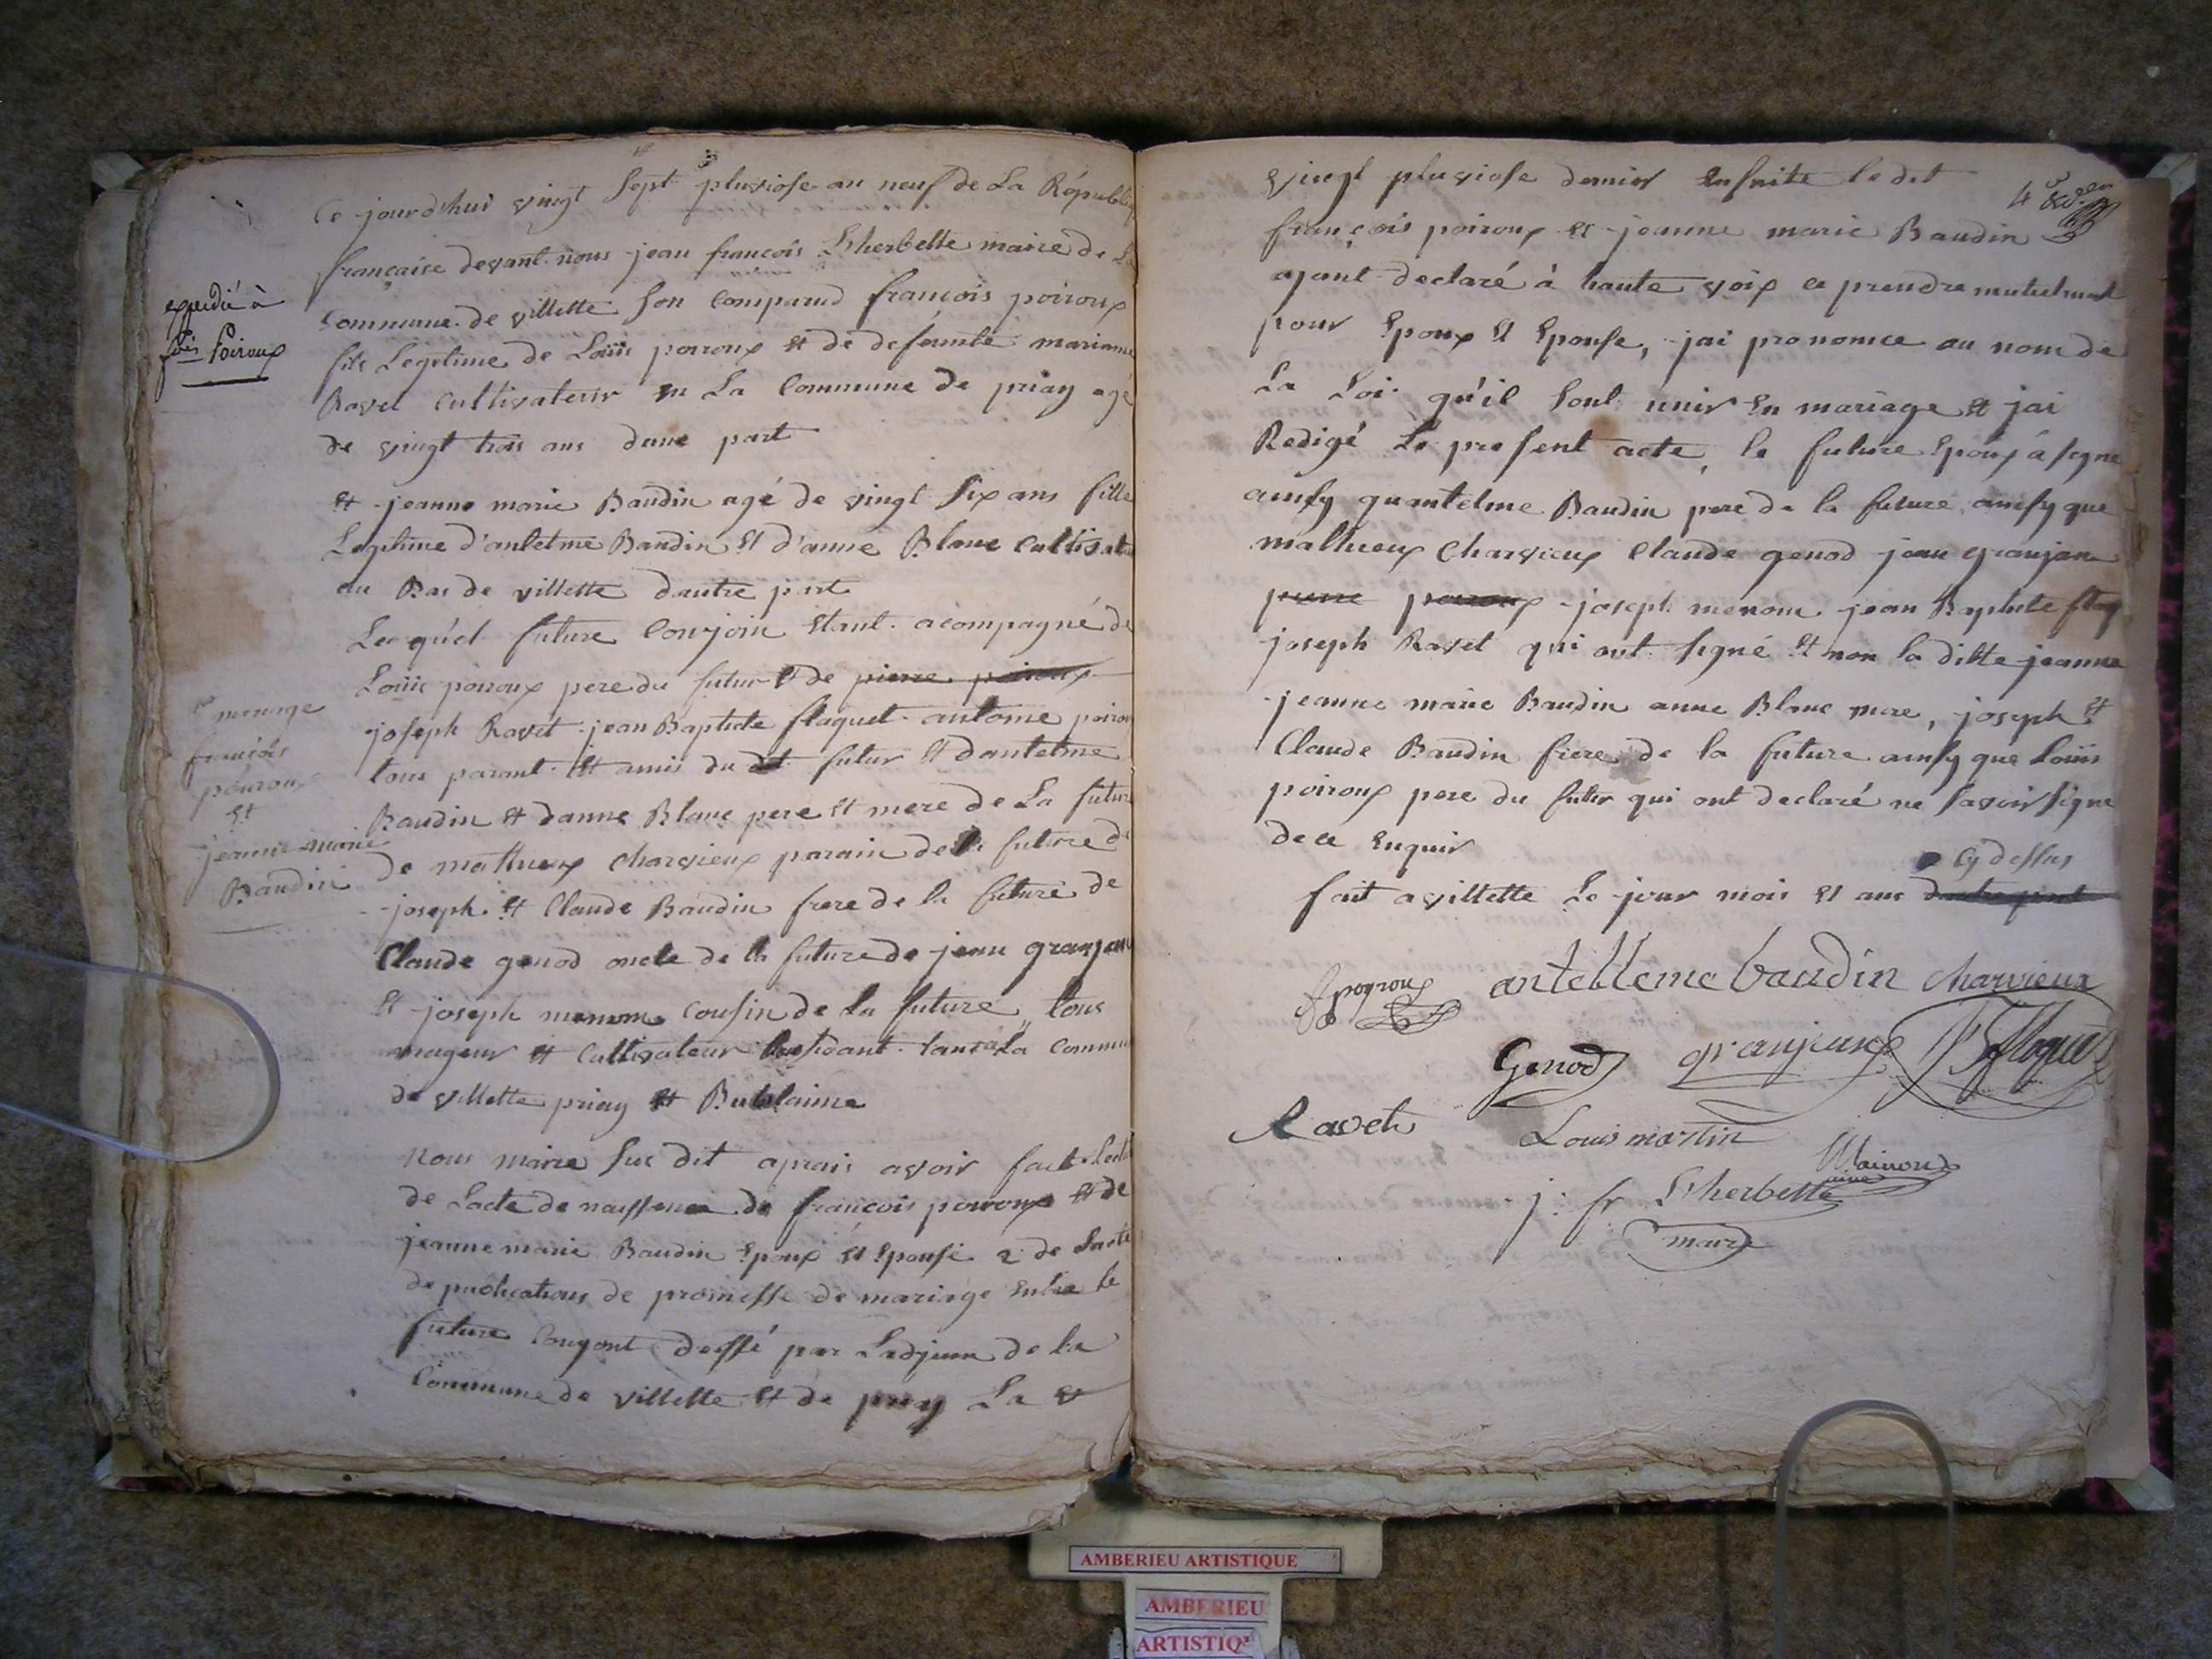 Ce jourd'hui vingt sept pluviose an neuf de La Républiq
française devant nous jean francois Lherbette maire de La
commune de villette son comparud francois poiroux
fils Legitime de Loüis poiroux et de defeunte marianne
Ravet cultivateur en La Commune de priay agé
de vingt trois ans dune part
et jeanne marie Baudin agé de vingt six ans fille
Legitime d'antelme Baudin et d'anne Blanc cultivat
au Bas de villette dautre part
Lesquel future Conjoin étant acompagné de
Loüis poiroux pere du futur et de pierre poiroux
joseph Ravet jean Baptiste flaquet antoine poirou
tous parant et amis du dt futur et dantelme
Baudin et danne Blanc pere et mere de La future
de mathieux charvieux parain de la future de
joseph et Claude Baudin frere de la future de
Claude genod oncle de la future de jean granjean
et joseph menom cousin de la future tous
mageur et Cultivateur Residant tant à La commun
de villette priay et Bublaine
nous maire sus dit aprais avoir fait Lect
de Lacte de naissence de francois poiroux et de
jeanne marie Baudin Epoux et Epouse 2 de Lacte
de publications de promesse de mariage entre le
future Conjont dessé par Ladjoin de la
Commune de villette et de priay La v
expedié à
fois Poiroux
mariage
francois
poiroux
et
jeanne marie
Baudin
vingt pluviose dernier Ensuite le dit
françois poiroux et jeanne marie Baudin
ayant declaré à haute voix ce prendre mutuelment
pour Epoux et Epouse, jai prononce au nom de
La Loi qu'il sont unir en mariage et jai
Redigé Le present acte, le future Epoux à signe
ainsy quantelme Baudin pere de la future ainsy que
mathieux Charvieux Claude genod jean granjean
pierre poiroux joseph menom jean Baptiste flaq
joseph Ravet qui ont signé et non la ditte jeanne
jeanne marie Baudin anne Blanc mere, joseph et
Claude Baudin frere de la future ainsy que Loüis
poiroux pere du futur qui ont declaré ne savoir signe
de ce Enquir
Cy dessus
fait a villette Le jour mois et ans dautre part
4
f poyroux antelleme baudin charvieux
Genod granjean JB flaquet
Ravet Louis martin
Mainond
j: fr Lherbette
maire
AMBERIEU ARTISTIQUE
AMBERIEU
ARTISTIQ